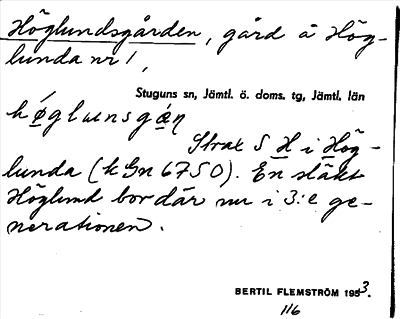 Höglundsgården, gård å Hög-
lunda nr 1,
Stuguns sn, Jämtl. ö. doms. tg, Jämtl. län
Strax S H i Hög-
lunda (kGn 6750). En släkt
Höglund bor där nu i 3:e ge-
nerationen.
BERTIL FLEMSTRÖM 1953.
116